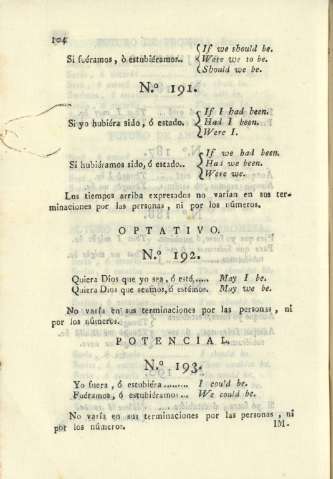 104
If we should be.
Si fuéramos, ò estubiéramos.. Were we to be.
Should we be.
N.º 191.
If I had been.
Si yo hubiéra sido, ó estado. Had I been.
Were I.
If we had been.
Si hubiéramos sido, ó estado.. Had we been.
Were we.
Los tiempos arriba expresados no varían en sus ter-
minaciones por las personas, ni por los números.
OPTATIVO.
N.º 192.
Quiera Dios que yo sea, ó esté,..... May I be.
Quiera Dios que seamos, ó estémos. May we be.
No varía en sus terminaciones por las personas, ni
por los números.
POTENCIAL.
N.º 193.
Yo fuera, ó estubiéra......... I could be.
Fuéramos, ó estubiéramos... We could be.
No varía en sus terminaciones por las personas, ni
por los números. IM-